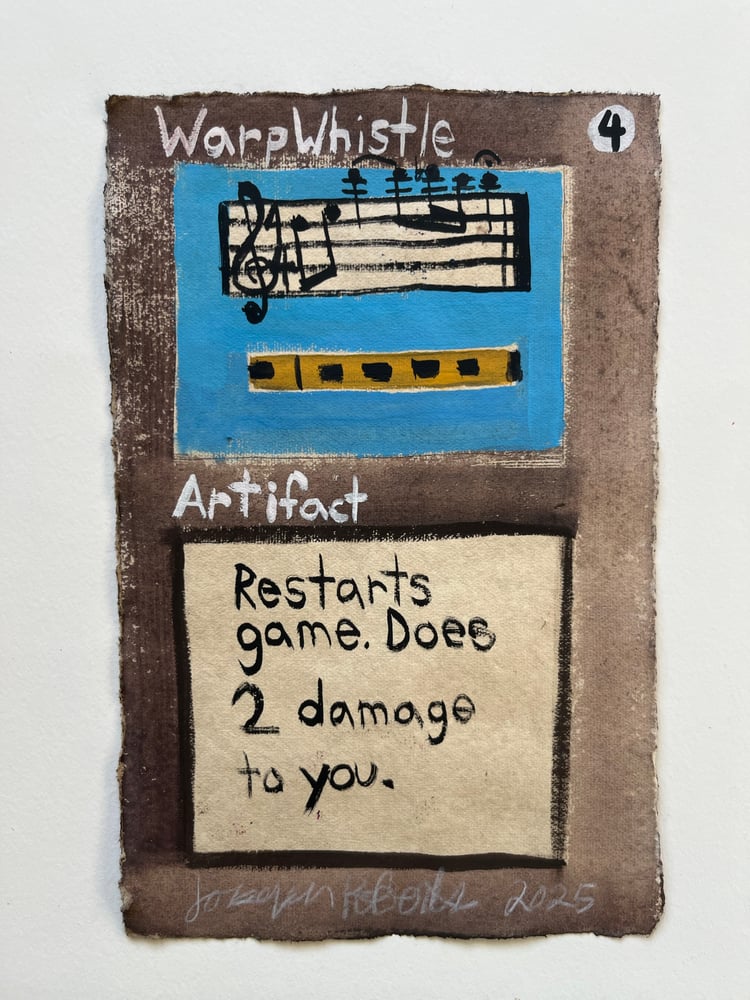 WarpWhistle
4
Artifact
Restarts
game. Does
2 damage
to you.
2025